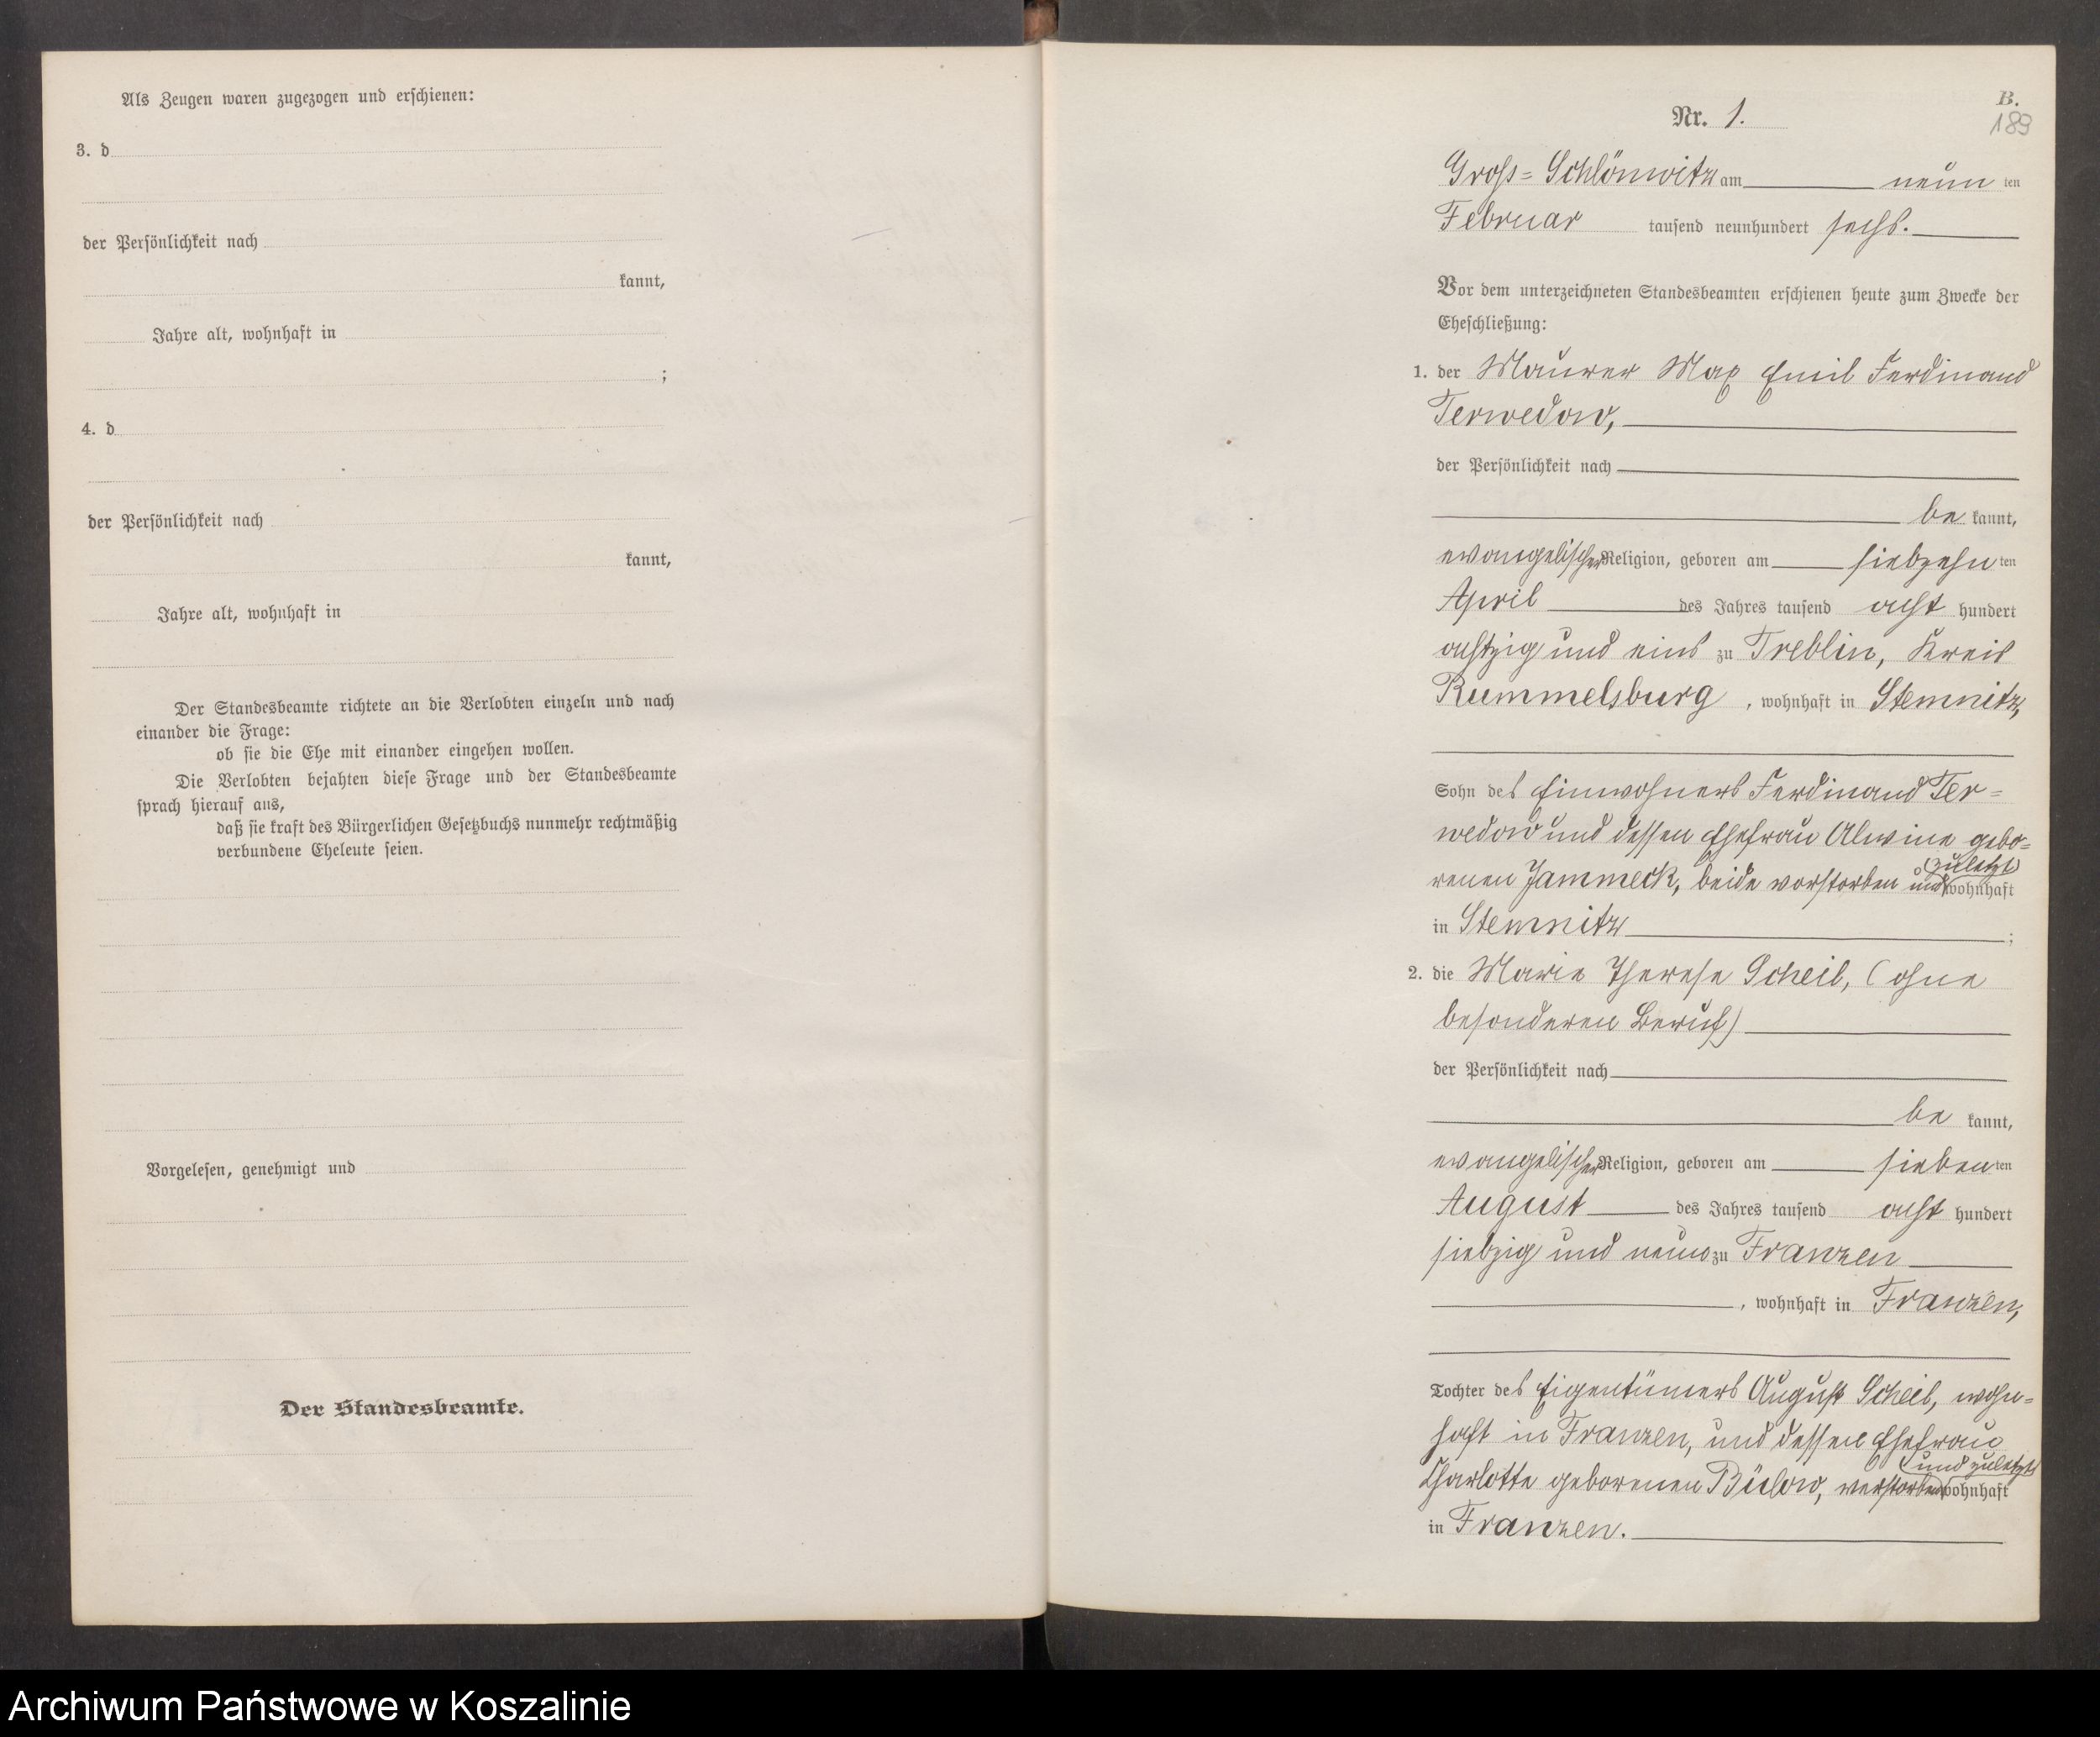 Als Zeugen waren zugezogen und erschienen:
3. d
der Persönlichkeit nach
kannt,
Jahre alt, wohnhaft in
;
4. d
der Persönlichkeit nach
kannt,
Jahre alt, wohnhaft in
Der Standesbeamte richtete an die Verlobten einzeln und nach
einander die Frage:
ob sie die Ehe mit einander eingehen wollen.
Die Verlobten bejahten diese Frage und der Standesbeamte
sprach hierauf aus,
daß sie kraft des Bürgerlichen Gesetzbuchs nunmehr rechtmäßig
verbundene Eheleute seien.
Vorgelesen, genehmigt und
Der Standesbeamte.
B.
Nr. 1.
189
Gross=Schlönwitz am neun ten
Februar tausend neunhundert sechs.
Vor dem unterzeichneten Standesbeamten erschienen heute zum Zwecke der
Eheschließung:
1. der Maurer Max Emil Ferdinand
Terwedow,
der Persönlichkeit nach
be kannt,
evangelischer Religion, geboren am siebzehn ten
April des Jahres tausend acht hundert
achtzig und eins zu Treblin, Kreis
Rummelsburg, wohnhaft in Stemnitz,
Sohn des Einwohners Ferdinand Ter=
wedow und dessen Ehefrau Alwine gebo=
renen Jammeck, beide verstorben und (zuletzt) wohnhaft
in Stemnitz ;
2. die Marie Therese Scheil, (ohne
besonderen Beruf)
der Persönlichkeit nach
be kannt,
evangelischer Religion, geboren am sieben ten
August des Jahres tausend acht hundert
siebzig und neun zu Franzen
, wohnhaft in Franzen,
Tochter des Eigentümers August Scheil, wohn=
haft in Franzen, und dessen Ehefrau
Charlotte geborenen Bülow, verstorben (und zuletzt) wohnhaft
in Franzen.
Archiwum Państwowe w Koszalinie